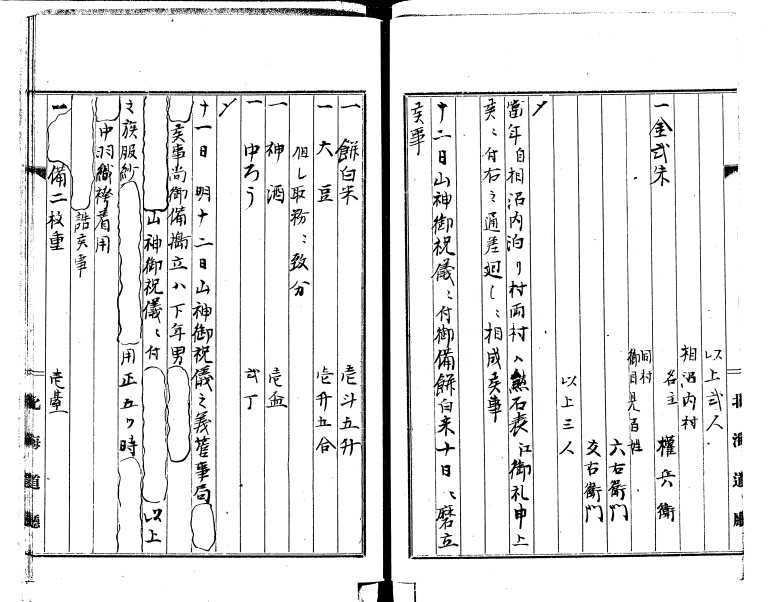 以上弐人
相沼内村
名主 權兵衛
一 金弐朱
同村
御目見百姓
六右衛門
文右衛門
以上三人
〆
當年自相沼内泊リ村両村ハ熊石表江御礼申上
候ニ付右之通差廻しニ相成候事
十二日山神御祝儀ニ付御備餅白米十日ニ磨立
候事
北海道廳
一 餅白米 壱斗五升
一 大豆 壱升五合
但し取務ニ致分
一 神酒 壱
一 中ろう 弐丁
〆
十一日 明十二日山神御祝儀之義
候事尚御備搗立ハ下年男
山神御祝儀ニ付 以上
之族服紗 用正五ツ時
中羽織袴着用
詰候事
一 備二枚重 壱
北海道廳